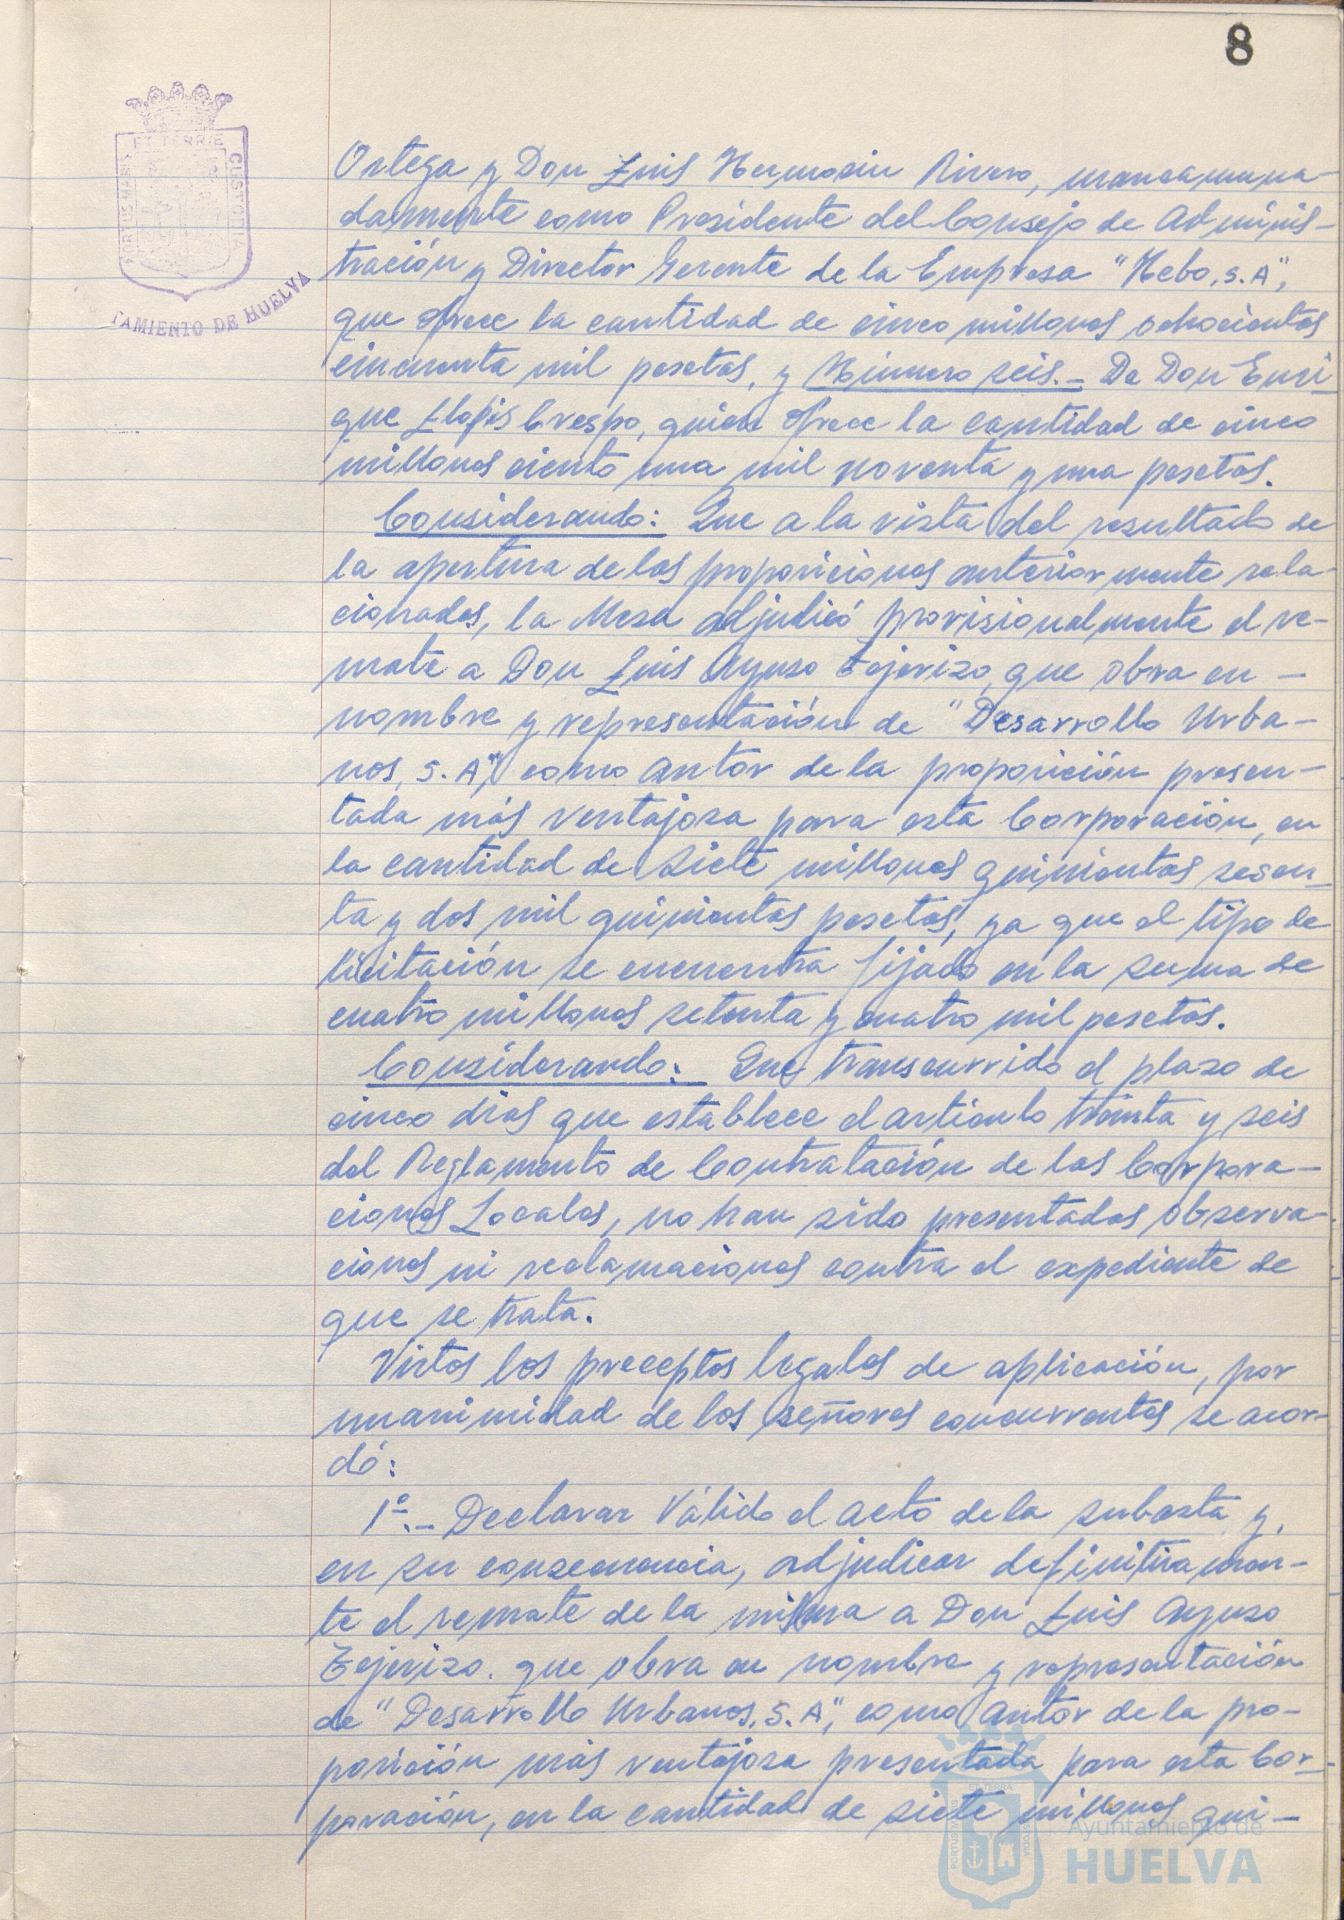 8
PORTUS MARIS ET TERRÆ CUSTODIA
TAMIENTO DE HUELVA
Ortega y Don Luis Hermosin Rivero, mancamuna-
damente como Presidente del Consejo de Adminis-
tración y Director Gerente de la Empresa "Hebo, S.A",
que ofrece la cantidad de cinco millones ochocientos
cincuenta mil pesetas, y Número seis.- De Don Enri-
que Llopis Crespo, quien ofrece la cantidad de cinco
millones ciento una mil noventa y una pesetas.
Considerando: Que a la vista del resultado de
la apertura de las proposiciones anteriormente rela-
cionadas, la Mesa adjudicó provisionalmente el re-
mate a Don Luis Ayuso Tejerizo, que obra en -
nombre y representación de "Desarrollo Urba-
nos, S.A", como autor de la proposición presen-
tada más ventajosa para esta Corporación, en
la cantidad de siete millones quinientas sesen-
ta y dos mil quinientas pesetas, ya que el tipo de
licitación se encuentra fijado en la suma de
cuatro millones setenta y cuatro mil pesetas.
Considerando: Que transcurrido el plazo de
cinco días que establece el artículo treinta y seis
del Reglamento de Contratación de las Corpora-
ciones Locales, no han sido presentadas observa-
ciones ni reclamaciones contra el expediente de
que se trata.
Vistos los preceptos legales de aplicación, por
unanimidad de los señores concurrentes se acor-
dó:
1º.- Declarar válido el acto de la subasta y,
en su consecuencia, adjudicar definitivamen-
te el remate de la misma a Don Luis Ayuso
Tejerizo. que obra en nombre y representación
de "Desarrollo Urbanos, S.A", como autor de la pro-
posición más ventajosa presentada para esta Cor-
poración, en la cantidad de siete millones qui-
Ayuntamiento de
HUELVA